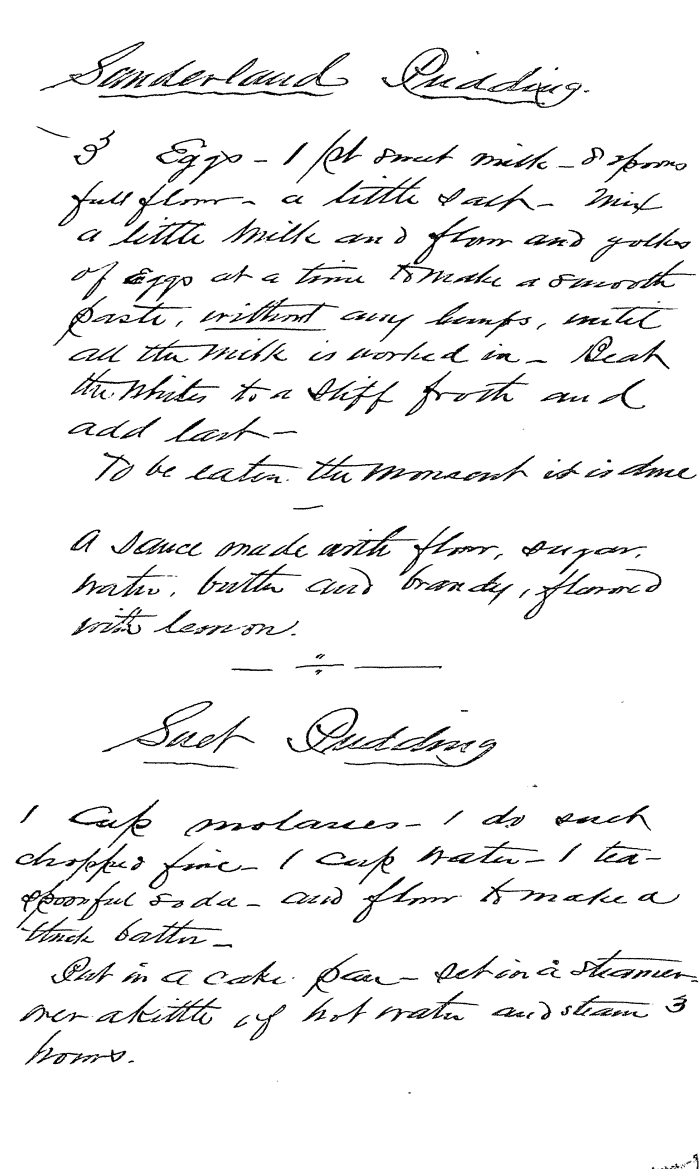 Sunderland Pudding.
3 Eggs - 1 pt sweet milk - 8 spoons
full flour - a little salt - Mix
a little milk and flour and yolks
of Eggs at a time to make a smooth
paste, without any lumps, until
all the milk is worked in - Beat
the whites to a stiff froth and
add last -
To be eaten the moment it is done
—
A sauce made with flour, sugar,
water, butter and brandy, flavored
with lemon.
Suet Pudding
1 Cup molasses - 1 do suet
chopped fine - 1 cup water - 1 tea-
spoonful soda - and flour to make a
thick batter -
Put in a cake pan - set in a steamer
over a kittle of hot water and steam 3
hours.